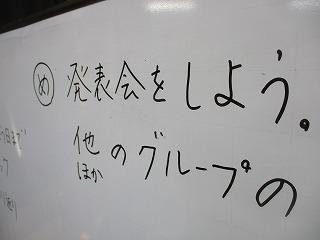 め 発表会をしよう。
他のグループの
ほか
日まで